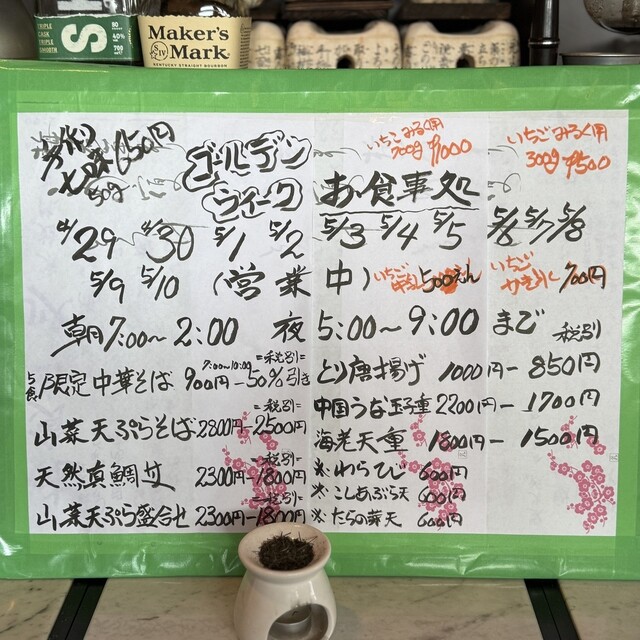 TRIPLE
CASK
TRIPLE
SMOOTH
S
80
40%
700
Maker's
Mark
SIV
KENTUCKY STRAIGHT BOURBON
650円
50g
ゴールデン
ウィーク
いちごみるく用
700g ¥1000
いちごみるく用
300g ¥500
お食事処
4/29 4/30 5/1 5/2 5/3 5/4 5/5 5/6 5/7 5/8
5/9 5/10 (営業中)
いちご
500えん
いちご
かき氷 700円
朝7:00〜2:00 夜5:00〜9:00まで 税別
5食限定中華そば 900円-50%引き
7:00〜10:00
=税別=
とり唐揚げ 1000円-850円
山菜天ぷらそば 2800円-2500円
=税別=
中国うな玉子重 2200円-1700円
天然真鯛丼 2300円-1800円
=税別=
海老天重 1800円-1500円
山菜天ぷら盛合せ 2300円-1800円
=税別=
※わらび 600円
※こしあぶら天 600円
※たらの芽天 600円